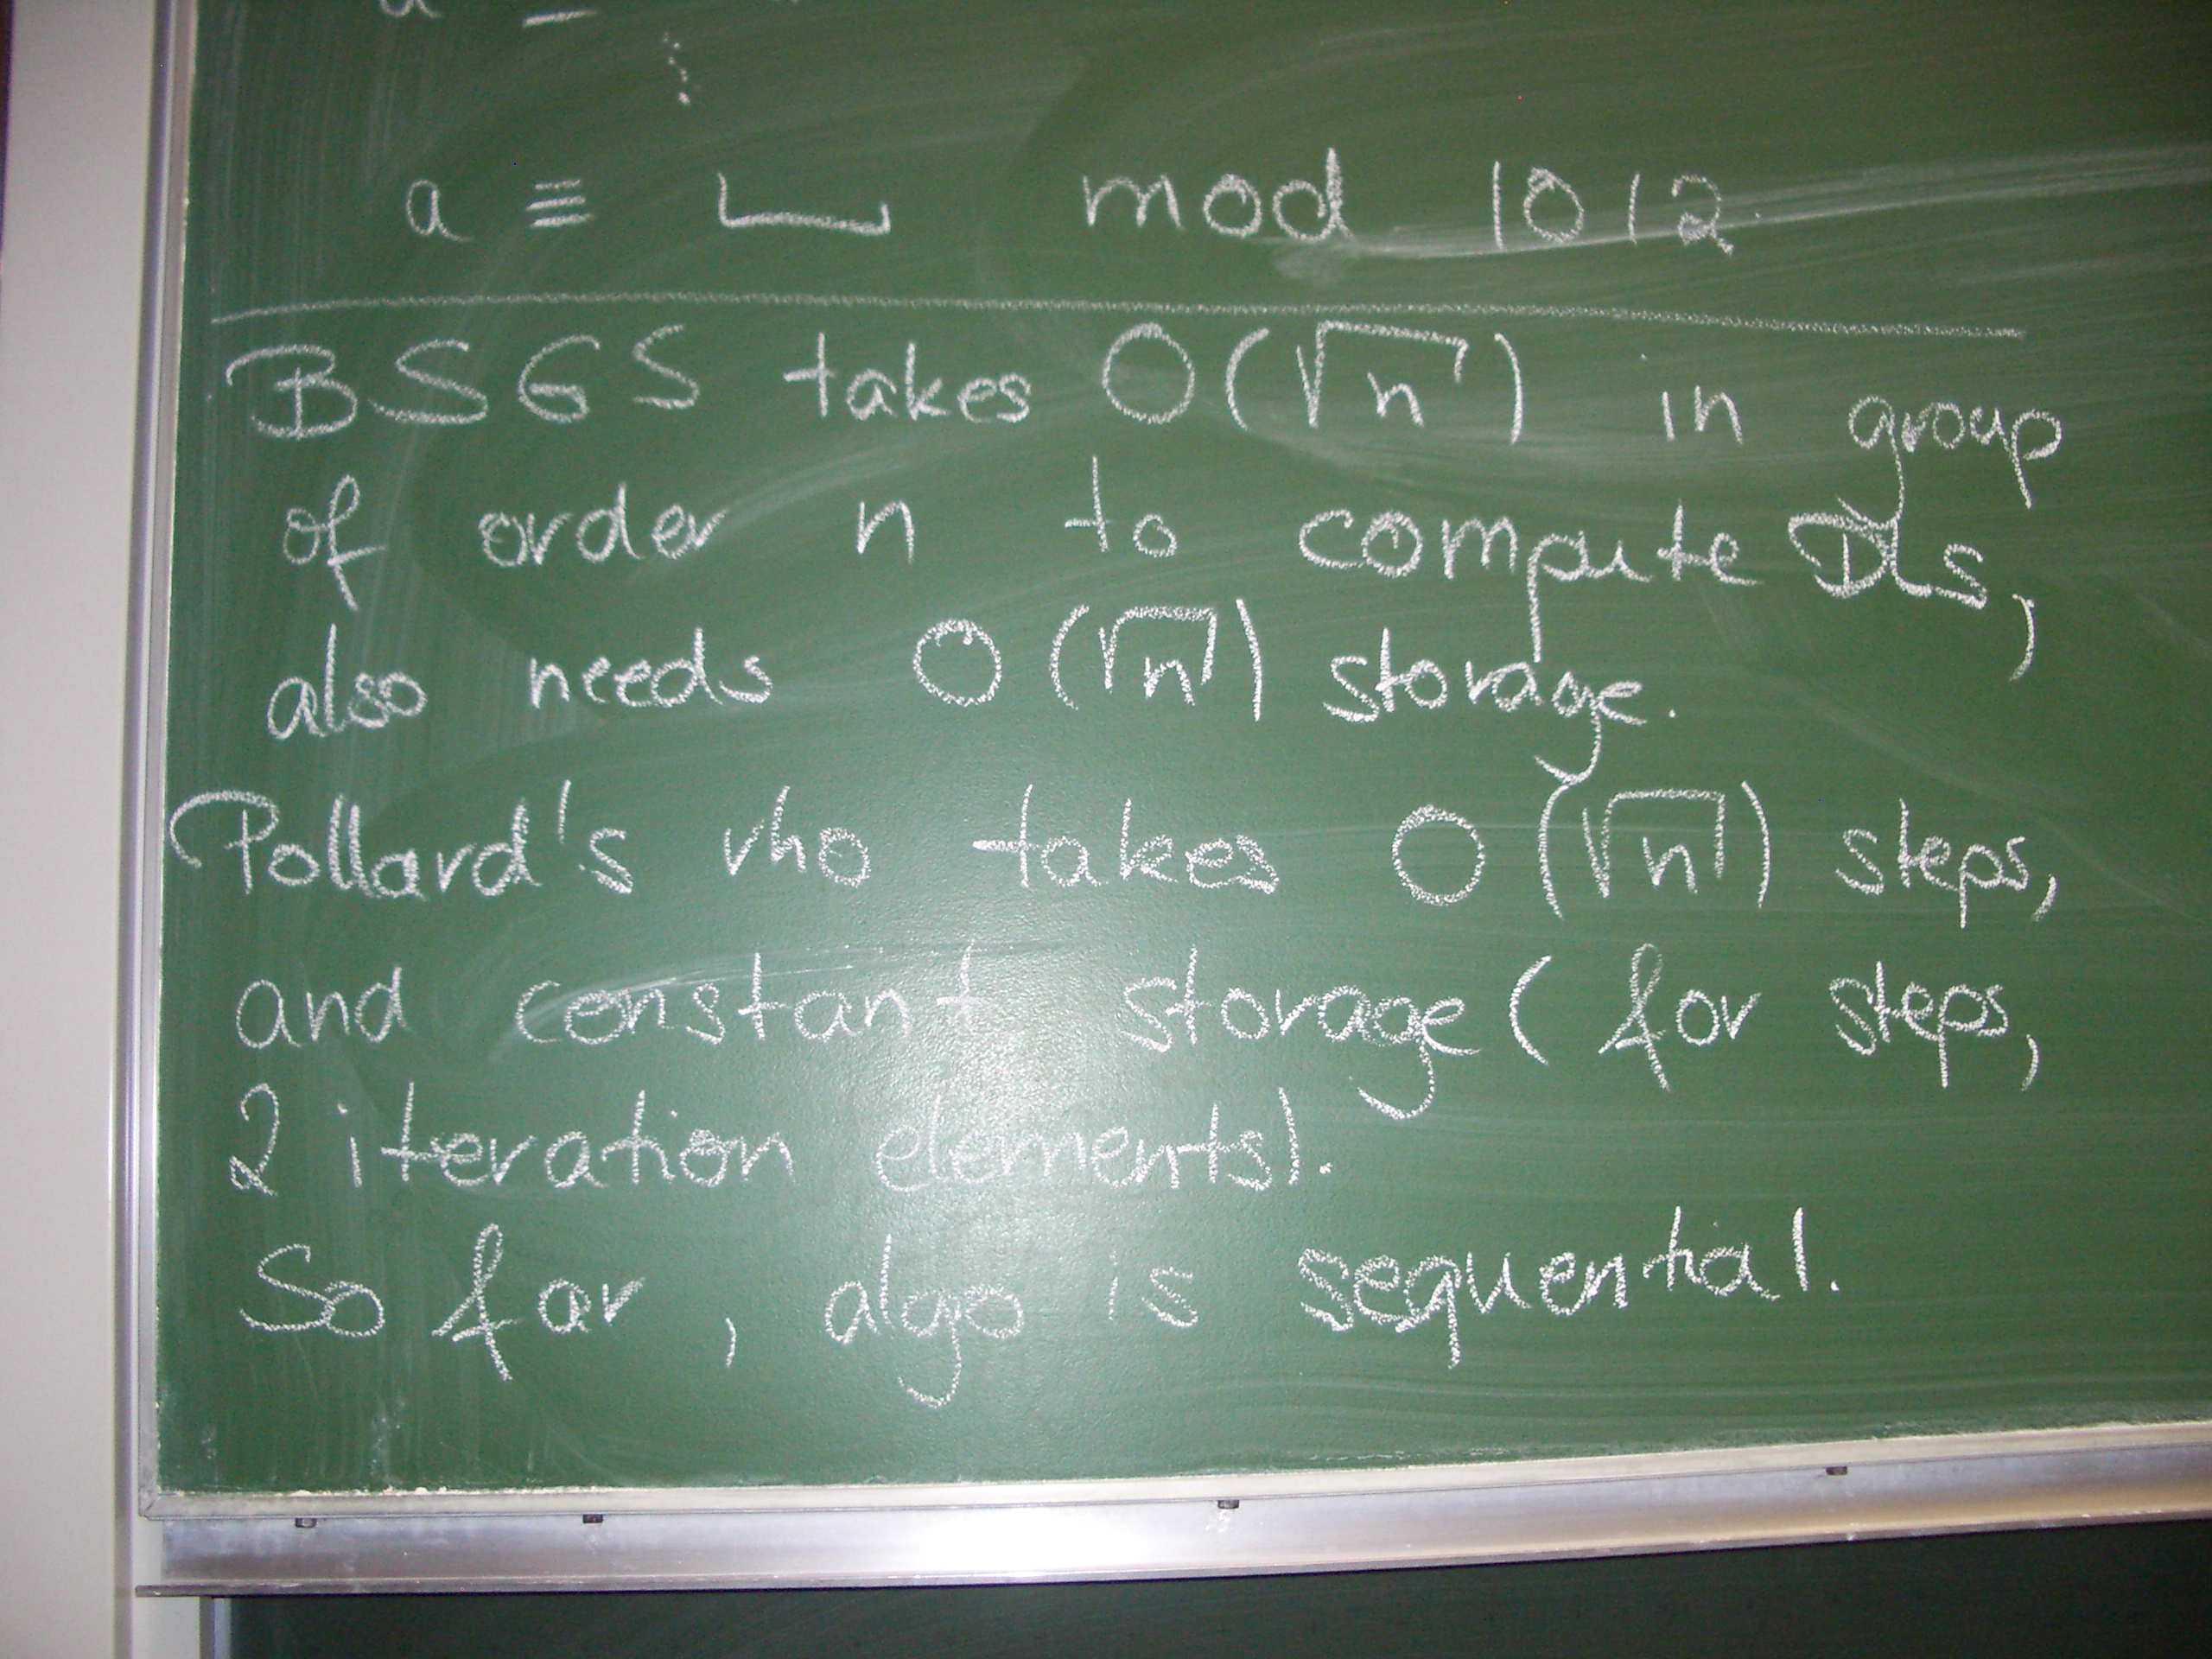 a ≡ ⎵ mod 1012
BSGS takes O(√n) in group
of order n to compute DLs,
also needs O(√n) storage.
Pollard's rho takes O(√n) steps,
and constant storage (for steps,
2 iteration elements).
So far, algo is sequential.